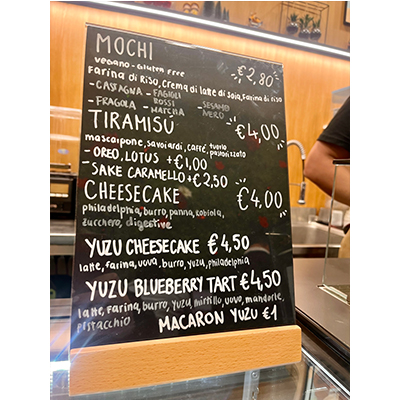 MOCHI €2,80
vegano - Gluten Free
Farina di Riso, Crema di latte di soia, Farina di riso
- CASTAGNA - FAGIOLI ROSSI - SESAMO NERO
- FRAGOLA - MATCHA
TIRAMISÙ €4,00
mascarpone, savoiardi, caffè, tuorlo pastorizzato
- OREO, LOTUS +€1,00
- SAKE CARAMELLO +€2,50
CHEESECAKE €4,00
philadelphia, burro, panna, robiola,
zucchero, digestive
YUZU CHEESECAKE €4,50
latte, farina, uova, burro, yuzu, philadelphia
YUZU BLUEBERRY TART €4,50
latte, farina, burro, yuzu, mirtillo, uovo, mandorle,
pistacchio
MACARON YUZU €1